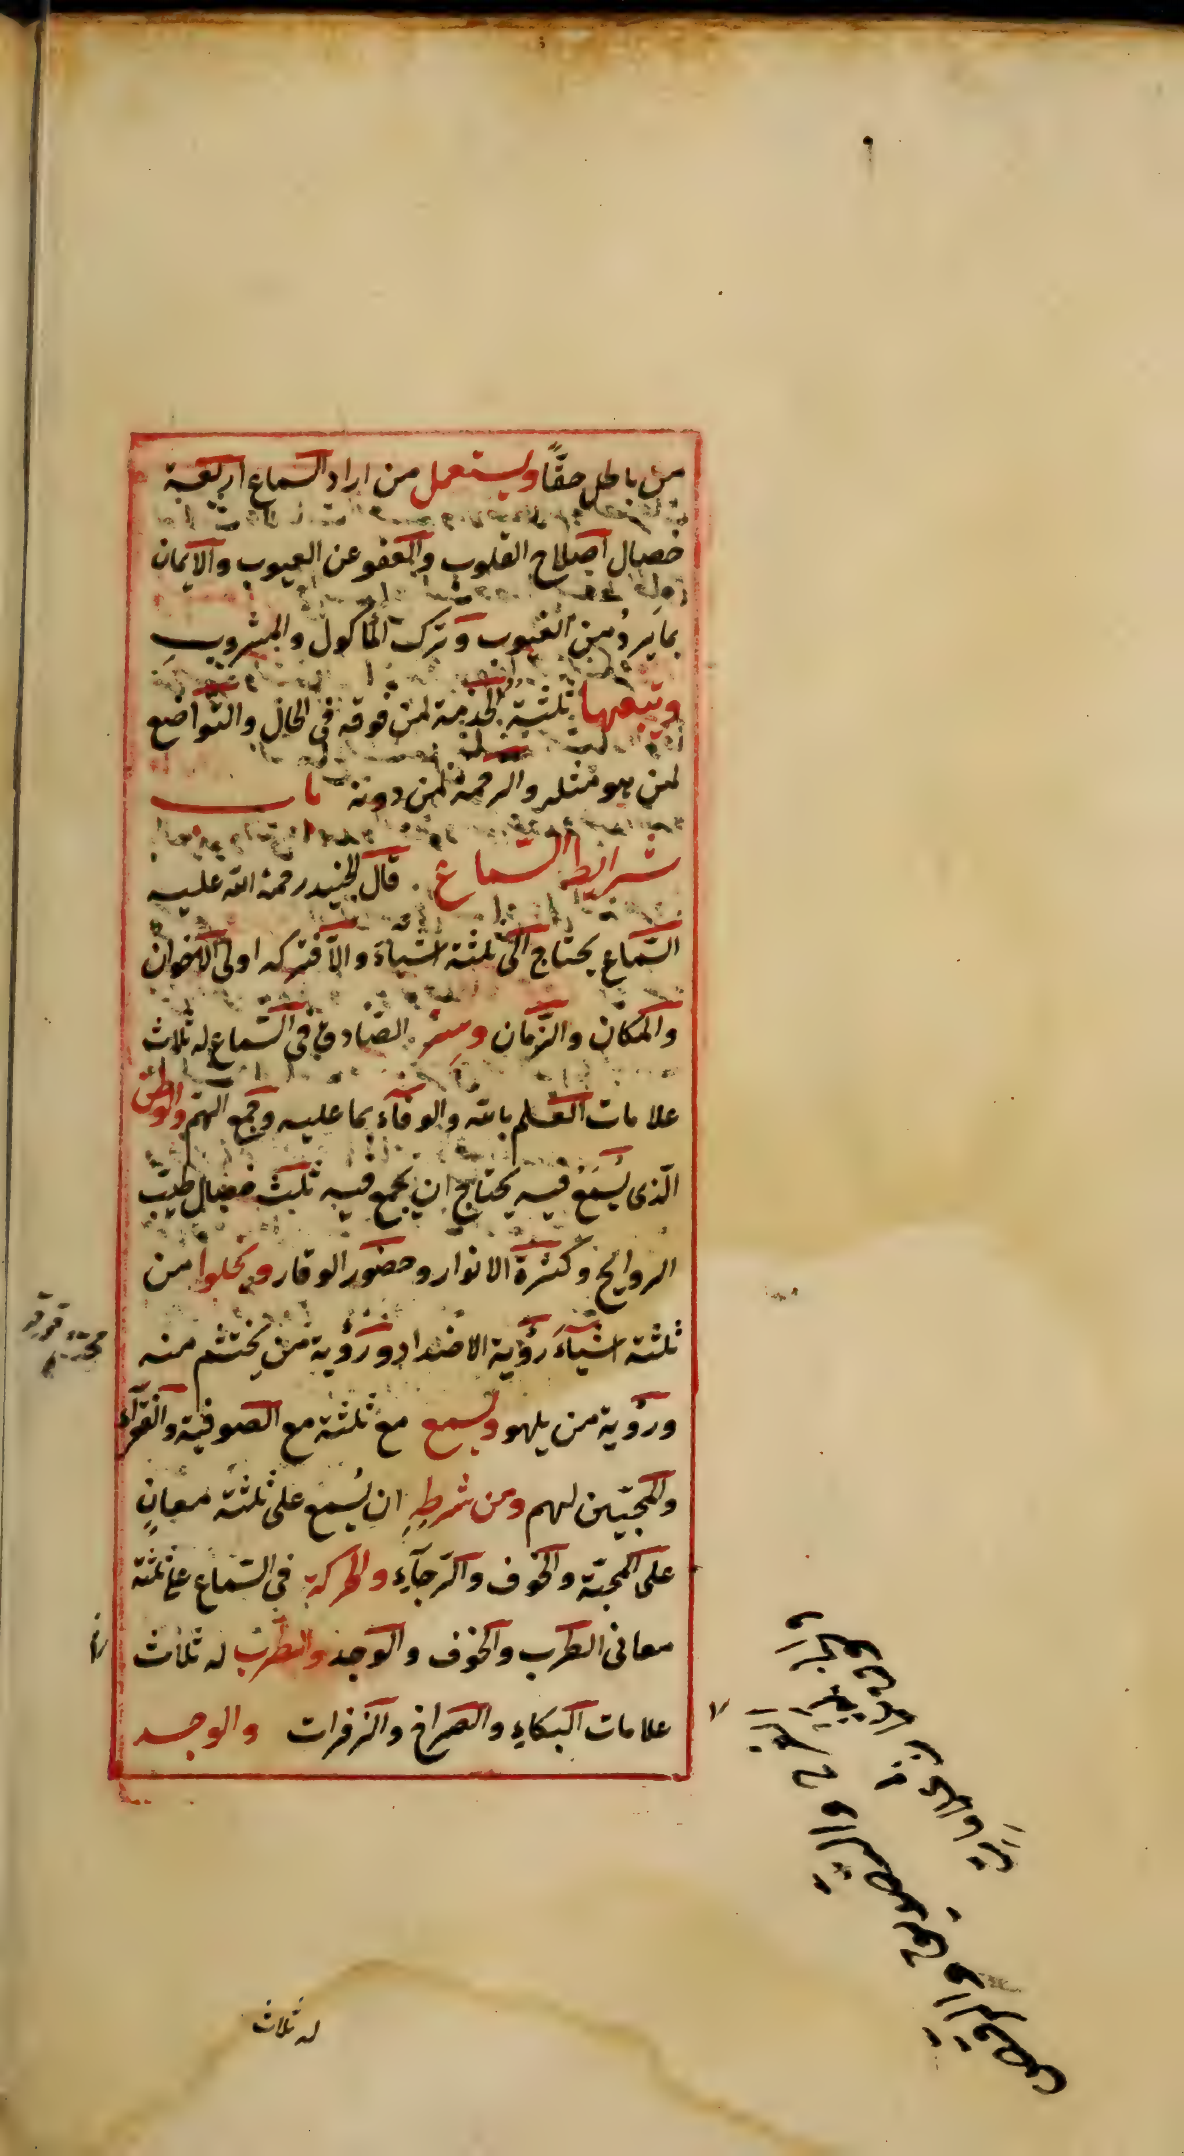 من باطل حقًا ويستعمل من اراد السماع اربعة
خصال اصلاح القلوب والعفو عن العيوب والايمان
بما يردُ من الغيوب وترك المأكول والمشروبِ
ويتبعها ثلثةٌ الخدمة لمن فوقه فى الحال والتواضع
لمن هو مثله والرحمة لمن دونه باب
شرايط السماع قال الجنيد رحمة الله عليه
السّماع يحتاج الى ثلثة اشياءَ والّا فتركه اولى الاخوان
والمكان والزّمان وسِرّ الصّادق فى السّماع له ثلاث
علامات العلم بالله والوفآء بما عليه وجمع الهمّ والوطن
الّذى يُسمَع فيه يحتاج ان يجمع فيه ثلث خصال طيب
الروايح وكثرة الانوار وحضور الوقار ويخلوا من
ثلثة اشيآءَ رؤية الاضداد ورؤية من يحتشم منه
ورؤية من يلهو ويسمع مع ثلثة مع الصوفية والفقرآء
والمحبّين لهم ومن شرطِهِ ان يُسمع على ثلثة معانٍ
على المحبّة والخوف والرّجآءِ والحركة فى السّماع على ثلثة
معانى الطرب والخوف والوجد والطرب له ثلاث
علامات البكاءِ والصراخ والزفرات والوجد
له ثلاث